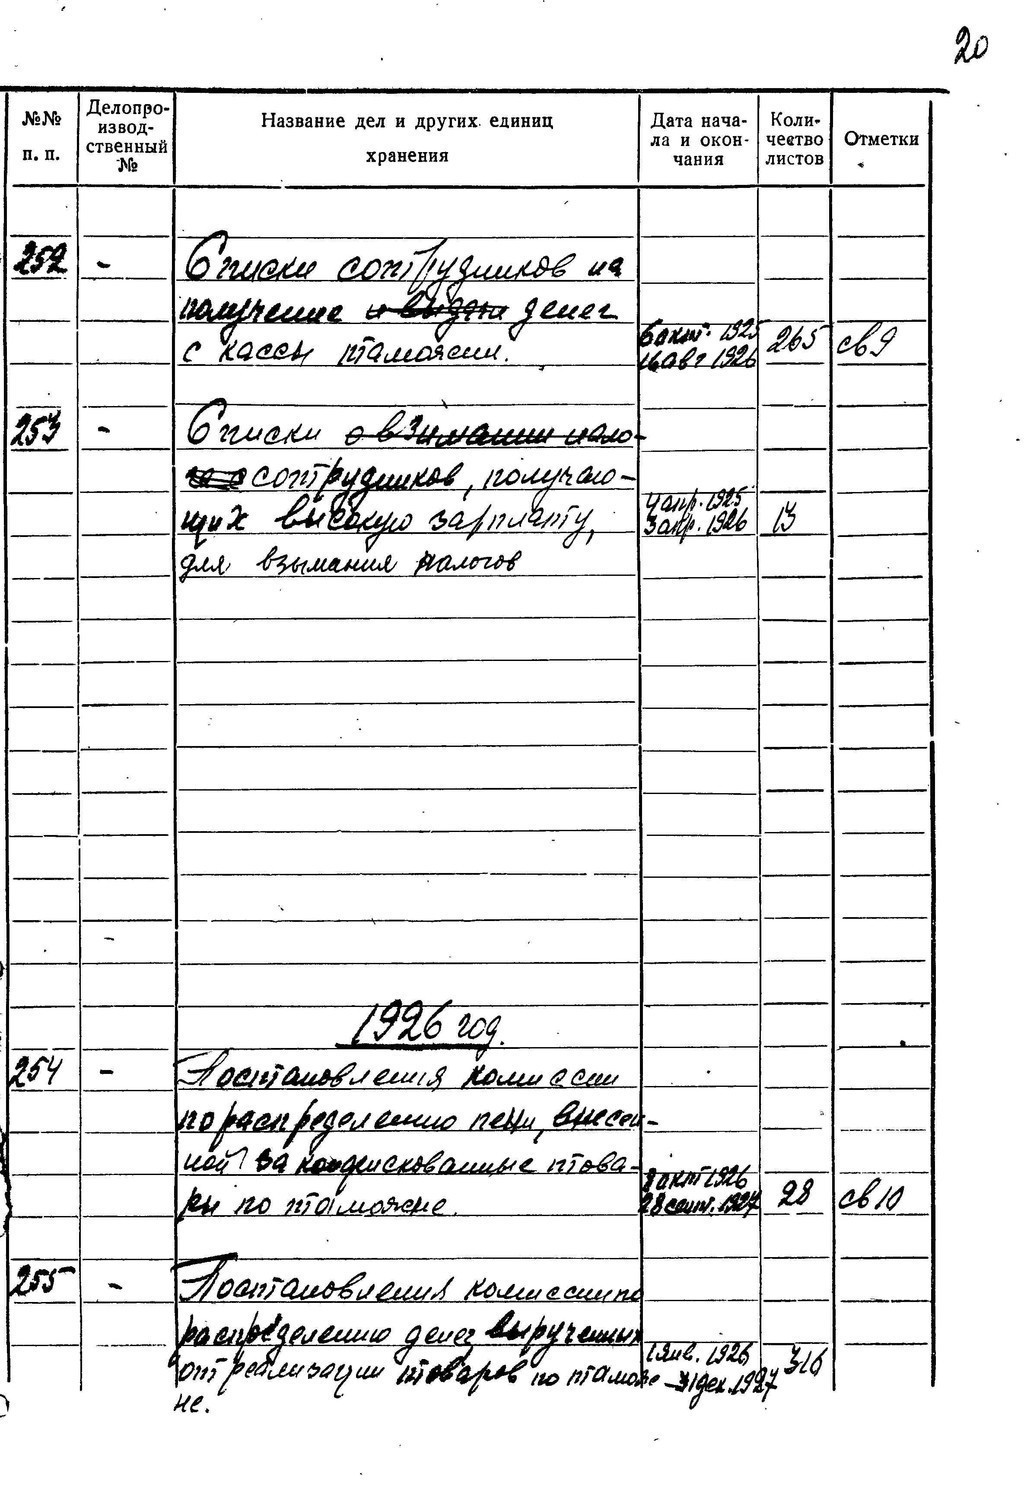 20
№№ п. п.
Делопро-
извод-
ственный
№
Название дел и других единиц
хранения
Дата нача-
ла и окон-
чания
Коли-
чество
листов
Отметки
252 - Списки сотрудников на
получение и выдачи денег
с кассы таможни. 6 окт. 1925 16 авг 1926 265 св 9
253 - Списки о взимании нало-
га с сотрудников, получаю-
щих высокую зарплату, 4 апр. 1925 3 апр. 1926 13
для взымания налогов
1926 год.
254 - Постановления комиссии
по распределению пени, внесен-
ной за конфискованные това-
ры по таможне. 8 окт 1926 28 сент. 1927 28 св 10
255 - Постановления комиссии по
распределению денег, вырученных
от реализации товаров по таможе- 1 янв. 1926 31 дек. 1927 316
не.